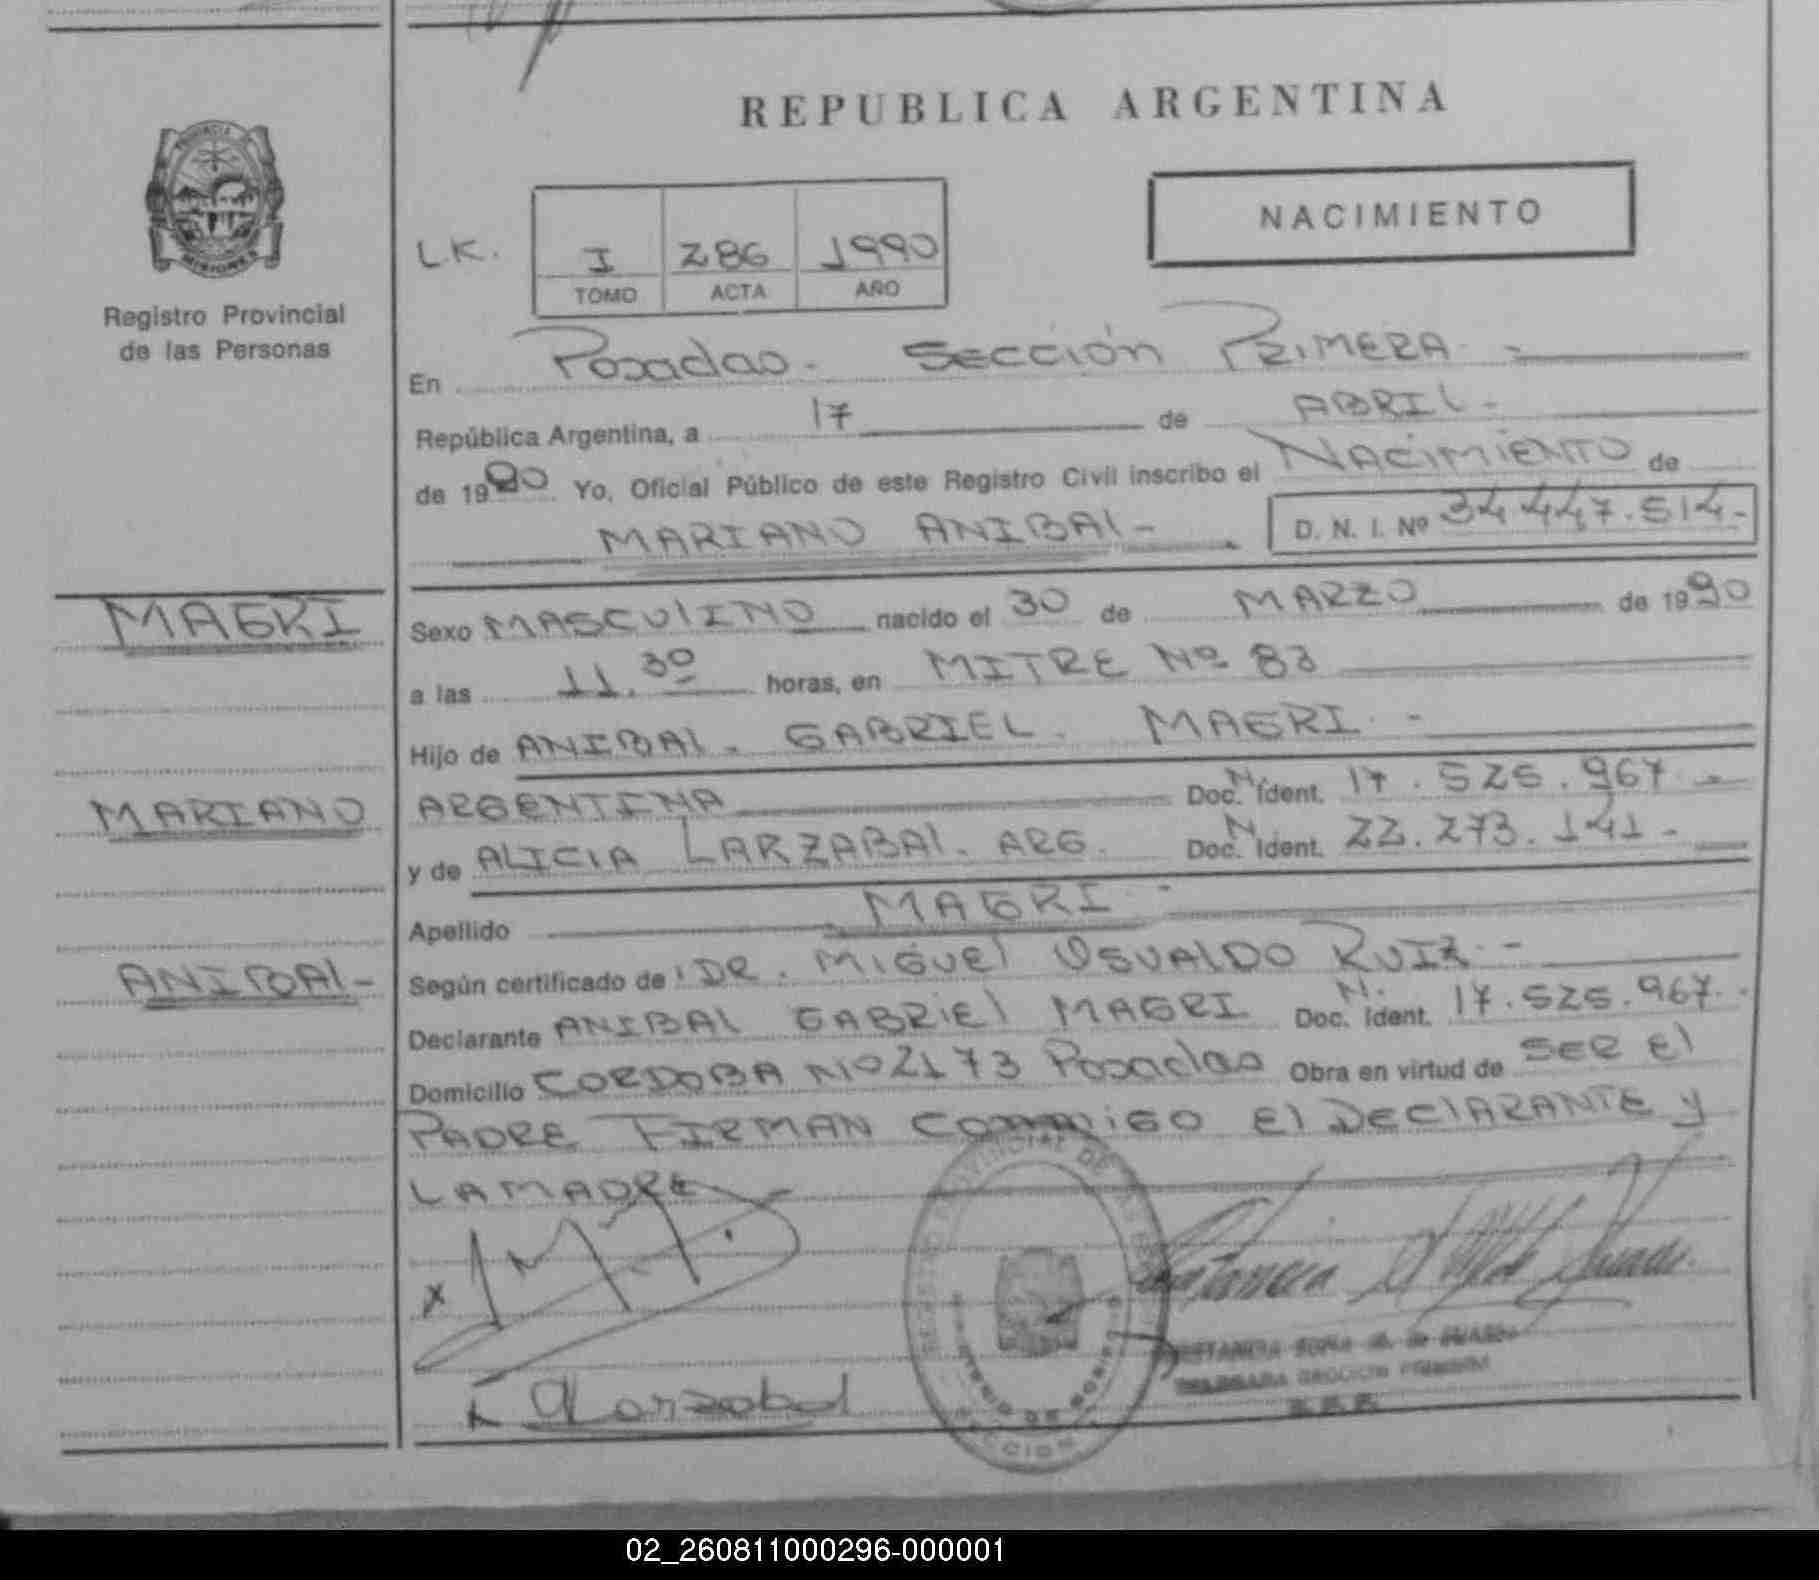 REPUBLICA ARGENTINA
NACIMIENTO
L.K. I 286 1990
TOMO ACTA AÑO
Registro Provincial
de las Personas
En Posadas. Sección Primera -
República Argentina, a 17 de ABRIL -
de 1990 Yo, Oficial Público de este Registro Civil inscribo el Nacimiento de
MARIANO ANIBAL - D. N. I. Nº 34 447.514 -
MAGRI
Sexo MASCULINO nacido el 30 de MARZO de 1990
a las 11.30 horas, en MITRE Nº 83
Hijo de ANIBAL. GABRIEL. MAGRI. -
MARIANO
ARGENTINA Doc. N. Ident. 17.525.967. -
y de ALICIA LARZABAL. ARG. Doc. N. Ident. 22.273.141 -
Apellido MAGRI -
ANIBAL -
Según certificado de DR. MIGUEL OSVALDO RUIZ. -
Declarante ANIBAL GABRIEL MAGRI Doc. N. Ident. 17.525.967.
Domicilio CORDOBA Nº 2173 Posadas Obra en virtud de SER EL
PADRE FIRMAN CONMIGO EL DECLARANTE y
LA MADRE
x
x Larzabal
02_260811000296-000001